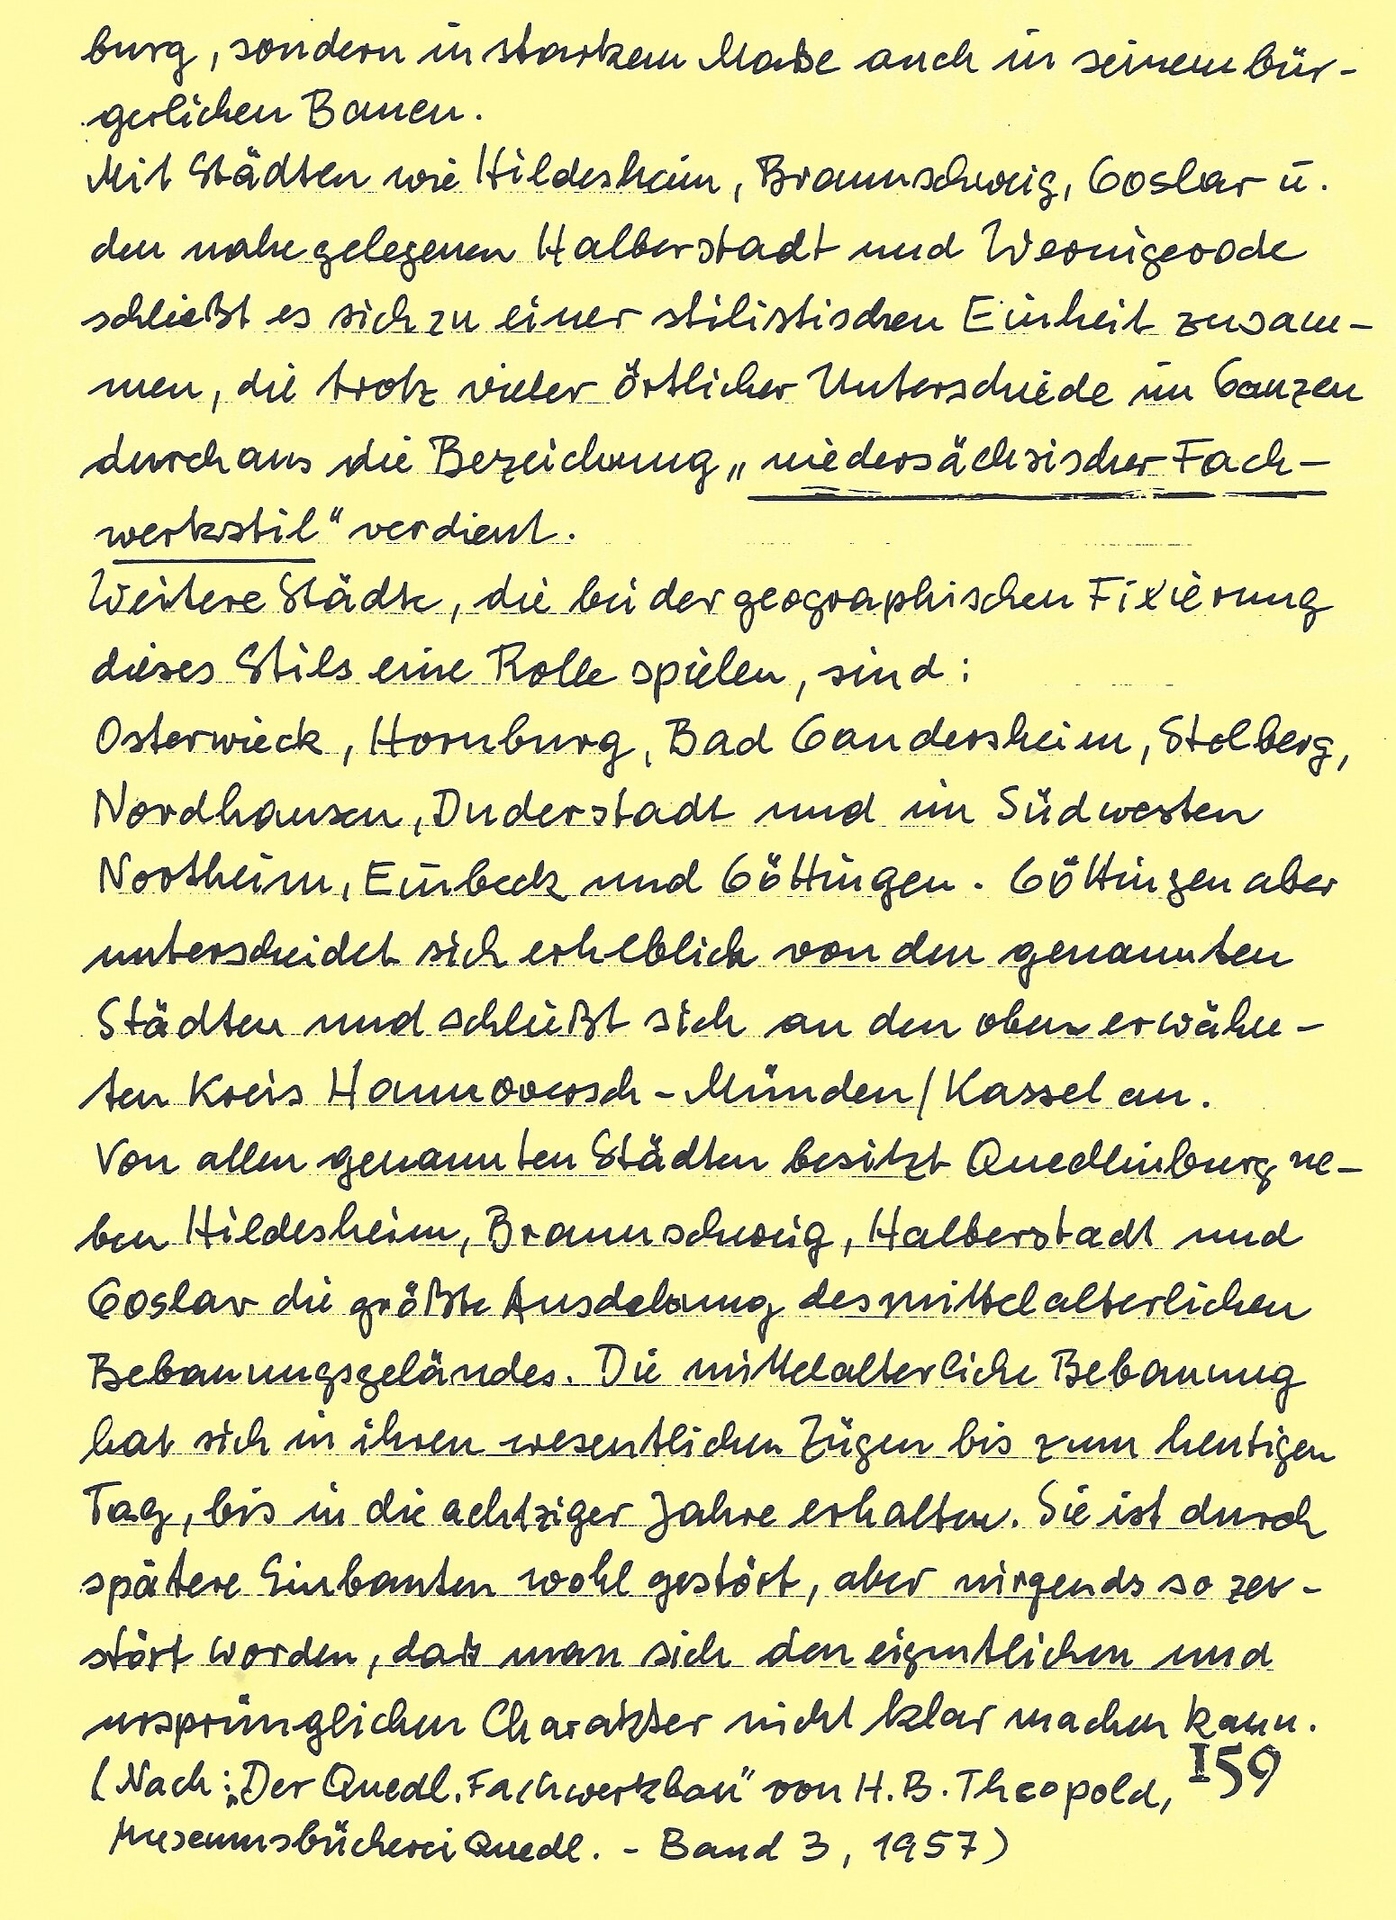 burg, sondern in starkem Maße auch in seinem bür-
gerlichen Bauen.
Mit Städten wie Hildesheim, Braunschweig, Goslar u.
den nahe gelegenen Halberstadt und Wernigerode
schließt es sich zu einer stilistischen Einheit zusam-
men, die trotz vieler örtlicher Unterschiede im Ganzen
durchaus die Bezeichnung „niedersächsischer Fach-
werkstil" verdient.
Weitere Städte, die bei der geographischen Fixierung
dieses Stils eine Rolle spielen, sind:
Osterwieck, Hornburg, Bad Gandersheim, Stolberg,
Nordhausen, Duderstadt und im Südwesten
Northeim, Einbeck und Göttingen. Göttingen aber
unterscheidet sich erheblich von den genannten
Städten und schließt sich an den oben erwähn-
ten Kreis Hannoversch-Münden/Kassel an.
Von allen genannten Städten besitzt Quedlinburg ne-
ben Hildesheim, Braunschweig, Halberstadt und
Goslar die größte Ausdehnung des mittelalterlichen
Bebauungsgeländes. Die mittelalterliche Bebauung
hat sich in ihren wesentlichen Zügen bis zum heutigen
Tag, bis in die achtziger Jahre erhalten. Sie ist durch
spätere Einbauten wohl gestört, aber nirgends so zer-
stört worden, daß man sich den eigentlichen und
ursprünglichen Charakter nicht klar machen kann.
(Nach: „Der Quedl. Fachwerkbau" von H.B. Theopold,
Museumsbücherei Quedl. - Band 3, 1957)
159